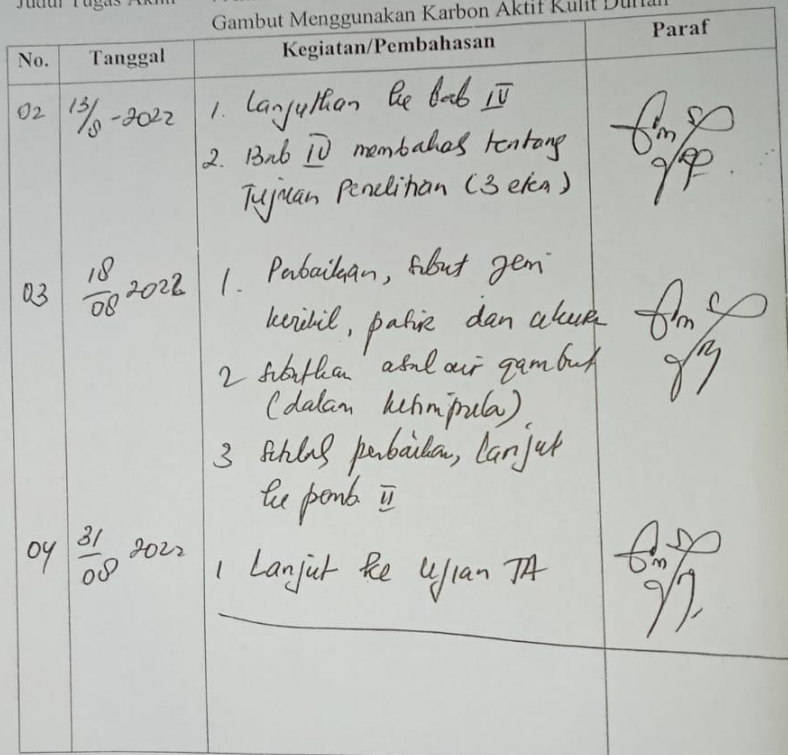 Judul Tugas Akhir
Gambut Menggunakan Karbon Aktif Kulit Durian
No. Tanggal Kegiatan/Pembahasan Paraf
02 13/8-2022 1. Lanjutkan ke bab IV
2. Bab IV membahas tentang
Tujuan Penelitian (3
03 18/08 2022 1. Perbaikan, sebut jenis
kerikil, pasir dan
2 sebutkan asal air gambut
(dalam
3 setelah perbaikan, lanjut
ke pemb. II
04 31/08 2022 1 Lanjut ke Ujian TA